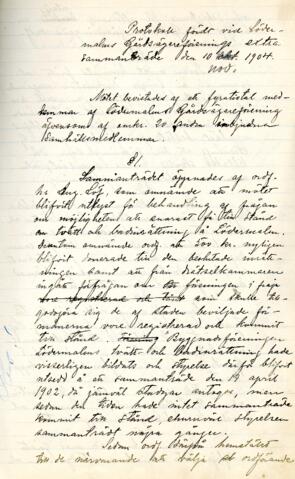 Protokoll fördt vid Söder-
malms Gårdsägareförenings extra
sammanträde den 10 okt. 1904.
nov.
Mötet bevistades af ett fyratiotal med-
lemmar af Södermalms Gårdsägareförening
äfvensom af omkr. 20 andra inbjudna
samhällsmedlemmar.
§ 1.
Sammanträdet öppnades af ordf.
hr Aug. Löf, som omnämnde att mötet
blifvit utlyst för behandling af frågan
om möjligheten att snarast få till stånd
en tvätt och badinrättning å Södermalm.
Dessutom omnämnde ordf. att 500 kr. nyligen
blifvit donerade till den beslutade inrätt-
ningen samt att från drätselkammaren
ingått förfrågan om föreningen i fråga
som skulle till-
godogöra sig de af staden beviljade för-
månerna vore registrerad och kommit
till stånd. Byggnadsföreningen
Södermalms tvätt och Badinrättning hade
visserligen bildats och styrelse därför blifvit
utsedd å ett sammanträde den 19 april
1902, då jämväl stadgar antogos, men
sedan den tiden hade intet sammanträde
kommit till stånd, ehuruväl styrelsen
sammanträdt några gånger.
Sedan ordf. hemställt
till de närvarande att välja ordförande